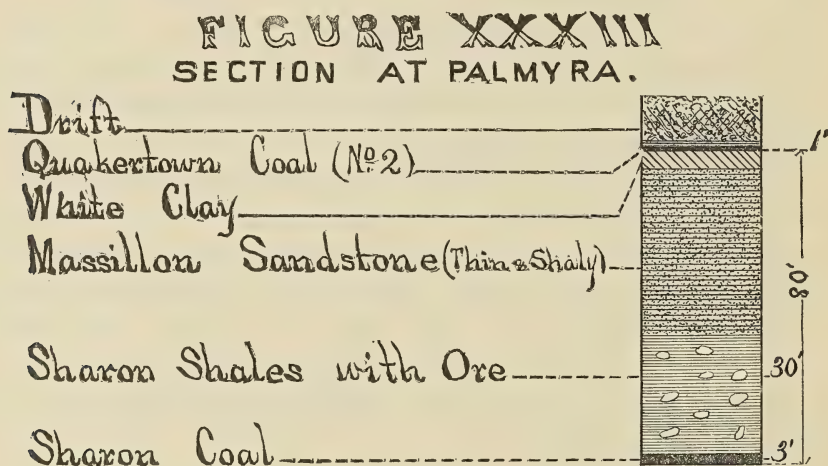 FIGURE XXXIII
SECTION AT PALMYRA.
Drift
Quakertown Coal (No. 2)
1'
White Clay
Massillon Sandstone (Thin & Shaly)
80'
Sharon Shales with Ore
30'
Sharon Coal
3'